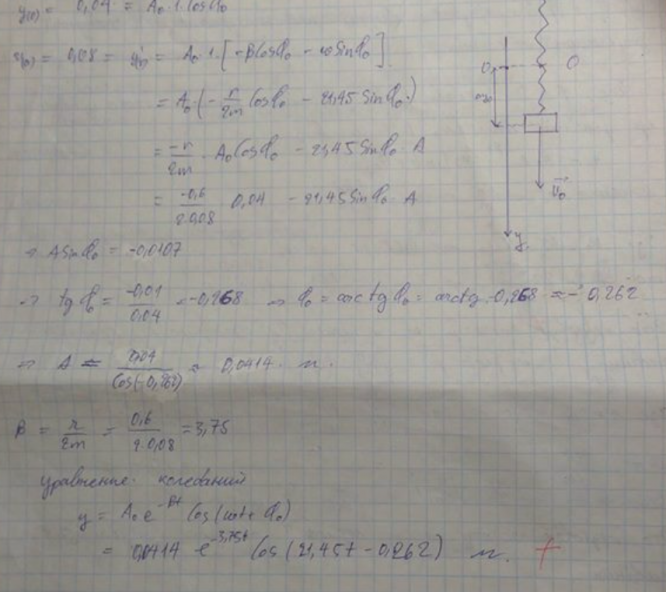 y(0) = 0,04 = A₀ · 1 · Cosφ₀
= 0,08 = = A₀ · 1 · [-βCosφ₀ - ωSinφ₀]
= A₀ (-r/2m Cosφ₀ - 21,45 Sinφ₀)
= -r/2m · A₀Cosφ₀ - 21,45 Sinφ₀ A
= -0,6/2·0,08 · 0,04 - 21,45 Sinφ₀ · A
⇒ A Sinφ₀ = -0,0107
⇒ tgφ₀ = -0,01/0,04 = -0,268 ⇒ φ₀ = arctgφ₀ = arctg -0,268 ≈ -0,262
⇒ A = 0,04/Cos(-0,262) = 0,0414 м.
β = r/2m = 0,6/2·0,08 = 3,75
уравнение колебаний
y = A₀e^-βt Cos(ωt + φ₀)
= 0,0414 e^-3,75t Cos(21,45t - 0,262) м. +
0 O
v₀
y